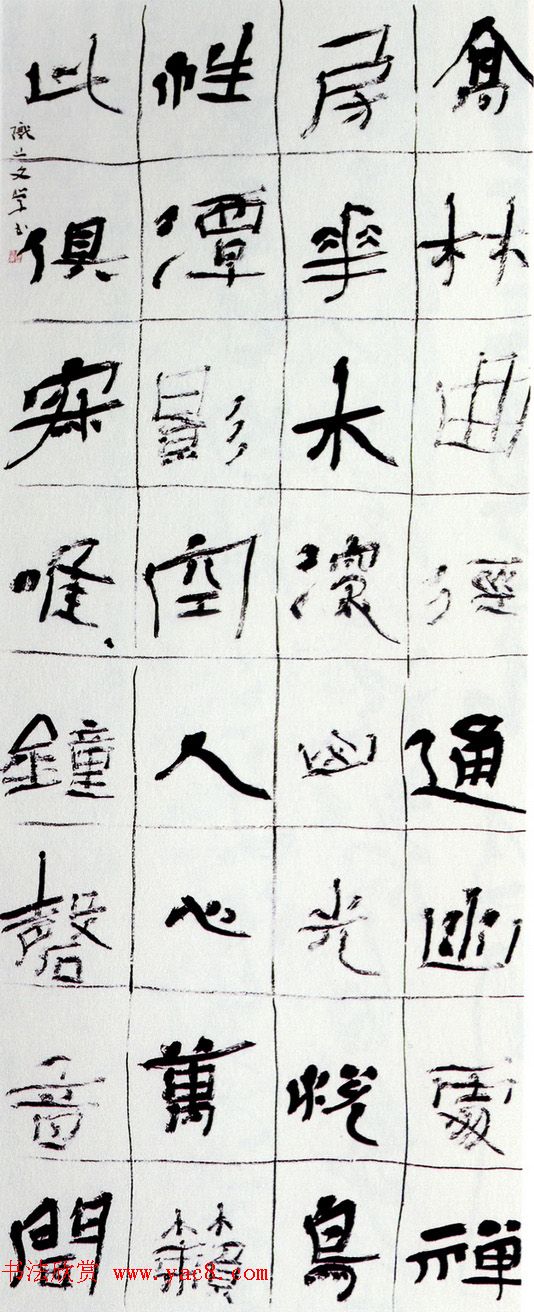 高林曲徑通幽處禪
房華木深山光悅鳥
性潭影空人心萬籟
此俱寂唯鐘磬音聞
书法欣赏 www.yac8.com